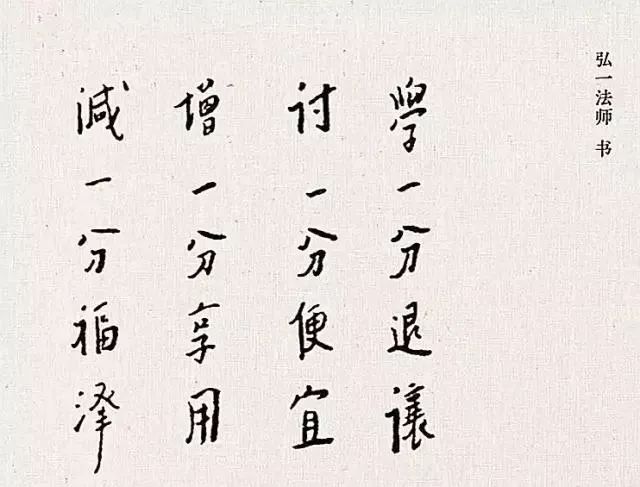 弘一法师 书
學一分退讓
讨一分便宜
增一分享用
減一分福泽